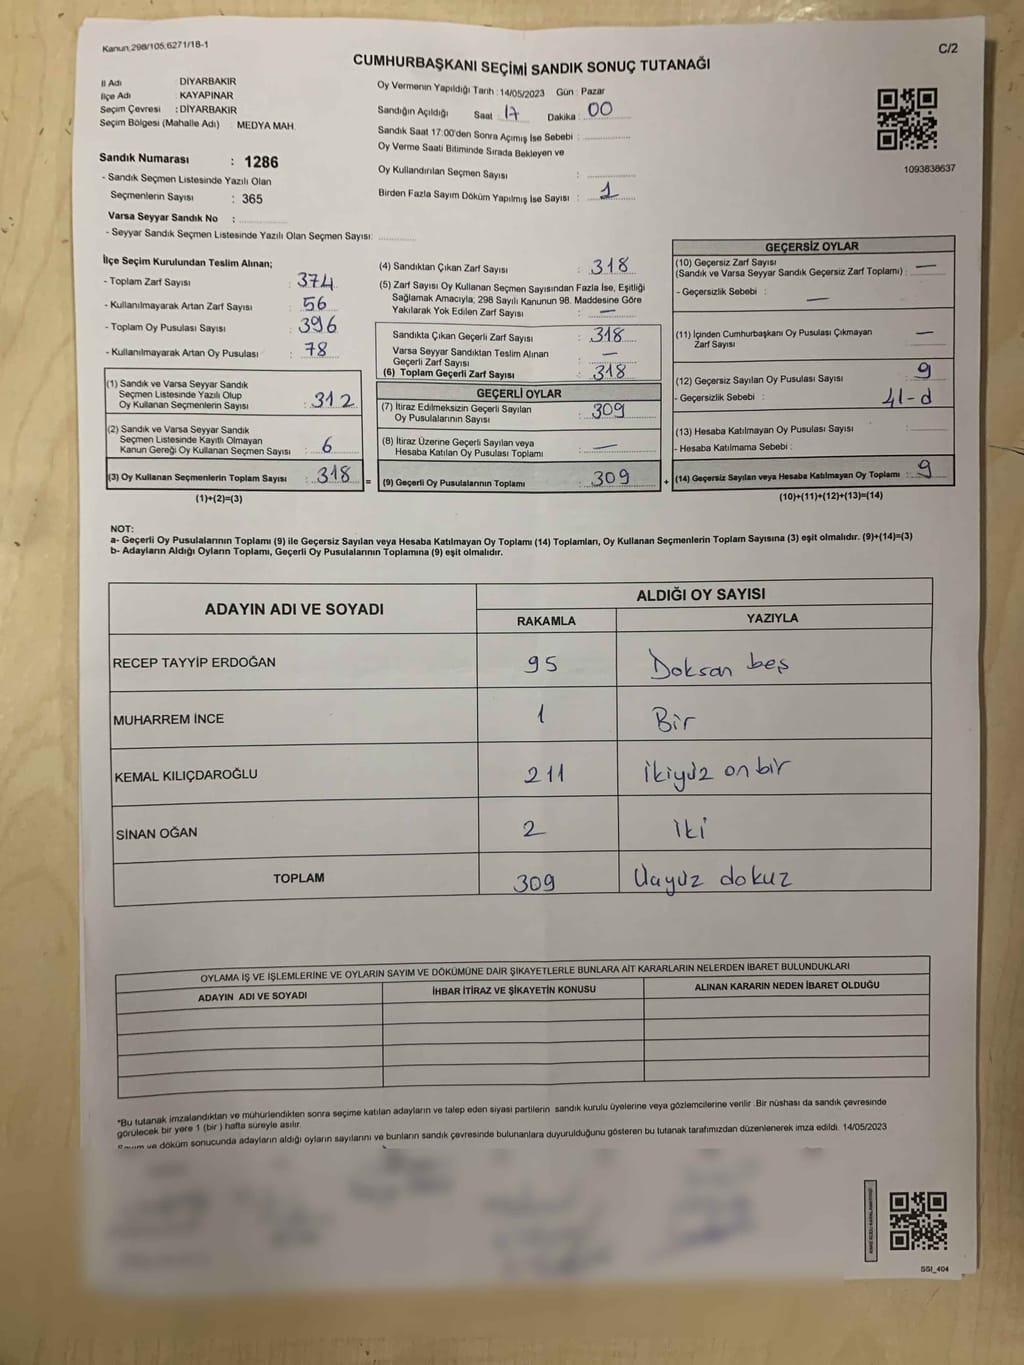 Kanun,298/105,6271/18-1
C/2
CUMHURBAŞKANI SEÇİMİ SANDIK SONUÇ TUTANAĞI
İl Adı : DİYARBAKIR
İlçe Adı : KAYAPINAR
Seçim Çevresi : DİYARBAKIR
Seçim Bölgesi (Mahalle Adı) : MEDYA MAH.
Oy Vermenin Yapıldığı Tarih : 14/05/2023 Gün : Pazar
Sandığın Açıldığı Saat 17 Dakika : 00
Sandık Saat 17:00'den Sonra Açımış İse Sebebi :
Oy Verme Saati Bitiminde Sırada Bekleyen ve
Oy Kullandırılan Seçmen Sayısı :
Birden Fazla Sayım Döküm Yapılmış İse Sayısı : 1
1093838637
Sandık Numarası : 1286
- Sandık Seçmen Listesinde Yazılı Olan
Seçmenlerin Sayısı : 365
Varsa Seyyar Sandık No :
- Seyyar Sandık Seçmen Listesinde Yazılı Olan Seçmen Sayısı:
İlçe Seçim Kurulundan Teslim Alınan;
- Toplam Zarf Sayısı : 374
- Kullanılmayarak Artan Zarf Sayısı : 56
- Toplam Oy Pusulası Sayısı : 396
- Kullanılmayarak Artan Oy Pusulası : 78
(1) Sandık ve Varsa Seyyar Sandık
Seçmen Listesinde Yazılı Olup
Oy Kullanan Seçmenlerin Sayısı : 312
(2) Sandık ve Varsa Seyyar Sandık
Seçmen Listesinde Kayıtlı Olmayan
Kanun Gereği Oy Kullanan Seçmen Sayısı : 6
(3) Oy Kullanan Seçmenlerin Toplam Sayısı : 318
(1)+(2)=(3)
(4) Sandıktan Çıkan Zarf Sayısı : 318
(5) Zarf Sayısı Oy Kullanan Seçmen Sayısından Fazla İse, Eşitliği
Sağlamak Amacıyla, 298 Sayılı Kanunun 98. Maddesine Göre
Yakılarak Yok Edilen Zarf Sayısı : —
Sandıkta Çıkan Geçerli Zarf Sayısı : 318
Varsa Seyyar Sandıktan Teslim Alınan
Geçerli Zarf Sayısı : —
(6) Toplam Geçerli Zarf Sayısı : 318
GEÇERLİ OYLAR
(7) İtiraz Edilmeksizin Geçerli Sayılan
Oy Pusulalarının Sayısı : 309
(8) İtiraz Üzerine Geçerli Sayılan veya
Hesaba Katılan Oy Pusulası Toplamı : —
= (9) Geçerli Oy Pusulalarının Toplamı : 309 +
GEÇERSİZ OYLAR
(10) Geçersiz Zarf Sayısı
(Sandık ve Varsa Seyyar Sandık Geçersiz Zarf Toplamı) : —
- Geçersizlik Sebebi : —
(11) İçinden Cumhurbaşkanı Oy Pusulası Çıkmayan
Zarf Sayısı : —
(12) Geçersiz Sayılan Oy Pusulası Sayısı : 9
- Geçersizlik Sebebi : 41-d
(13) Hesaba Katılmayan Oy Pusulası Sayısı :
- Hesaba Katılmama Sebebi :
(14) Geçersiz Sayılan veya Hesaba Katılmayan Oy Toplamı : 9
(10)+(11)+(12)+(13)=(14)
NOT:
a- Geçerli Oy Pusulalarının Toplamı (9) ile Geçersiz Sayılan veya Hesaba Katılmayan Oy Toplamı (14) Toplamları, Oy Kullanan Seçmenlerin Toplam Sayısına (3) eşit olmalıdır. (9)+(14)=(3)
b- Adayların Aldığı Oyların Toplamı, Geçerli Oy Pusulalarının Toplamına (9) eşit olmalıdır.
ADAYIN ADI VE SOYADI
ALDIĞI OY SAYISI
RAKAMLA YAZIYLA
RECEP TAYYİP ERDOĞAN 95 Doksan beş
MUHARREM İNCE 1 Bir
KEMAL KILIÇDAROĞLU 211 ikiyüz on bir
SİNAN OĞAN 2 iki
TOPLAM 309 Üçyüz dokuz
OYLAMA İŞ VE İŞLEMLERİNE VE OYLARIN SAYIM VE DÖKÜMÜNE DAİR ŞİKAYETLERLE BUNLARA AİT KARARLARIN NELERDEN İBARET BULUNDUKLARI
ADAYIN ADI VE SOYADI İHBAR İTİRAZ VE ŞİKAYETİN KONUSU ALINAN KARARIN NEDEN İBARET OLDUĞU
*Bu tutanak imzalandıktan ve mühürlendikten sonra seçime katılan adayların ve talep eden siyasi partilerin sandık kurulu üyelerine veya gözlemcilerine verilir .Bir nüshası da sandık çevresinde
görülecek bir yere 1 (bir ) hafta süreyle asılır.
Sayım ve döküm sonucunda adayların aldığı oyların sayılarını ve bunların sandık çevresinde bulunanlara duyurulduğunu gösteren bu tutanak tarafımızdan düzenlenerek imza edildi. 14/05/2023
SSI_404